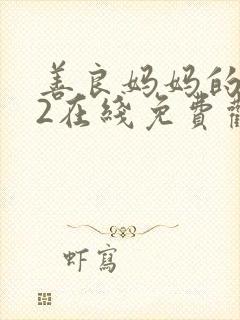 善良妈妈的
2在线免費
虾寫